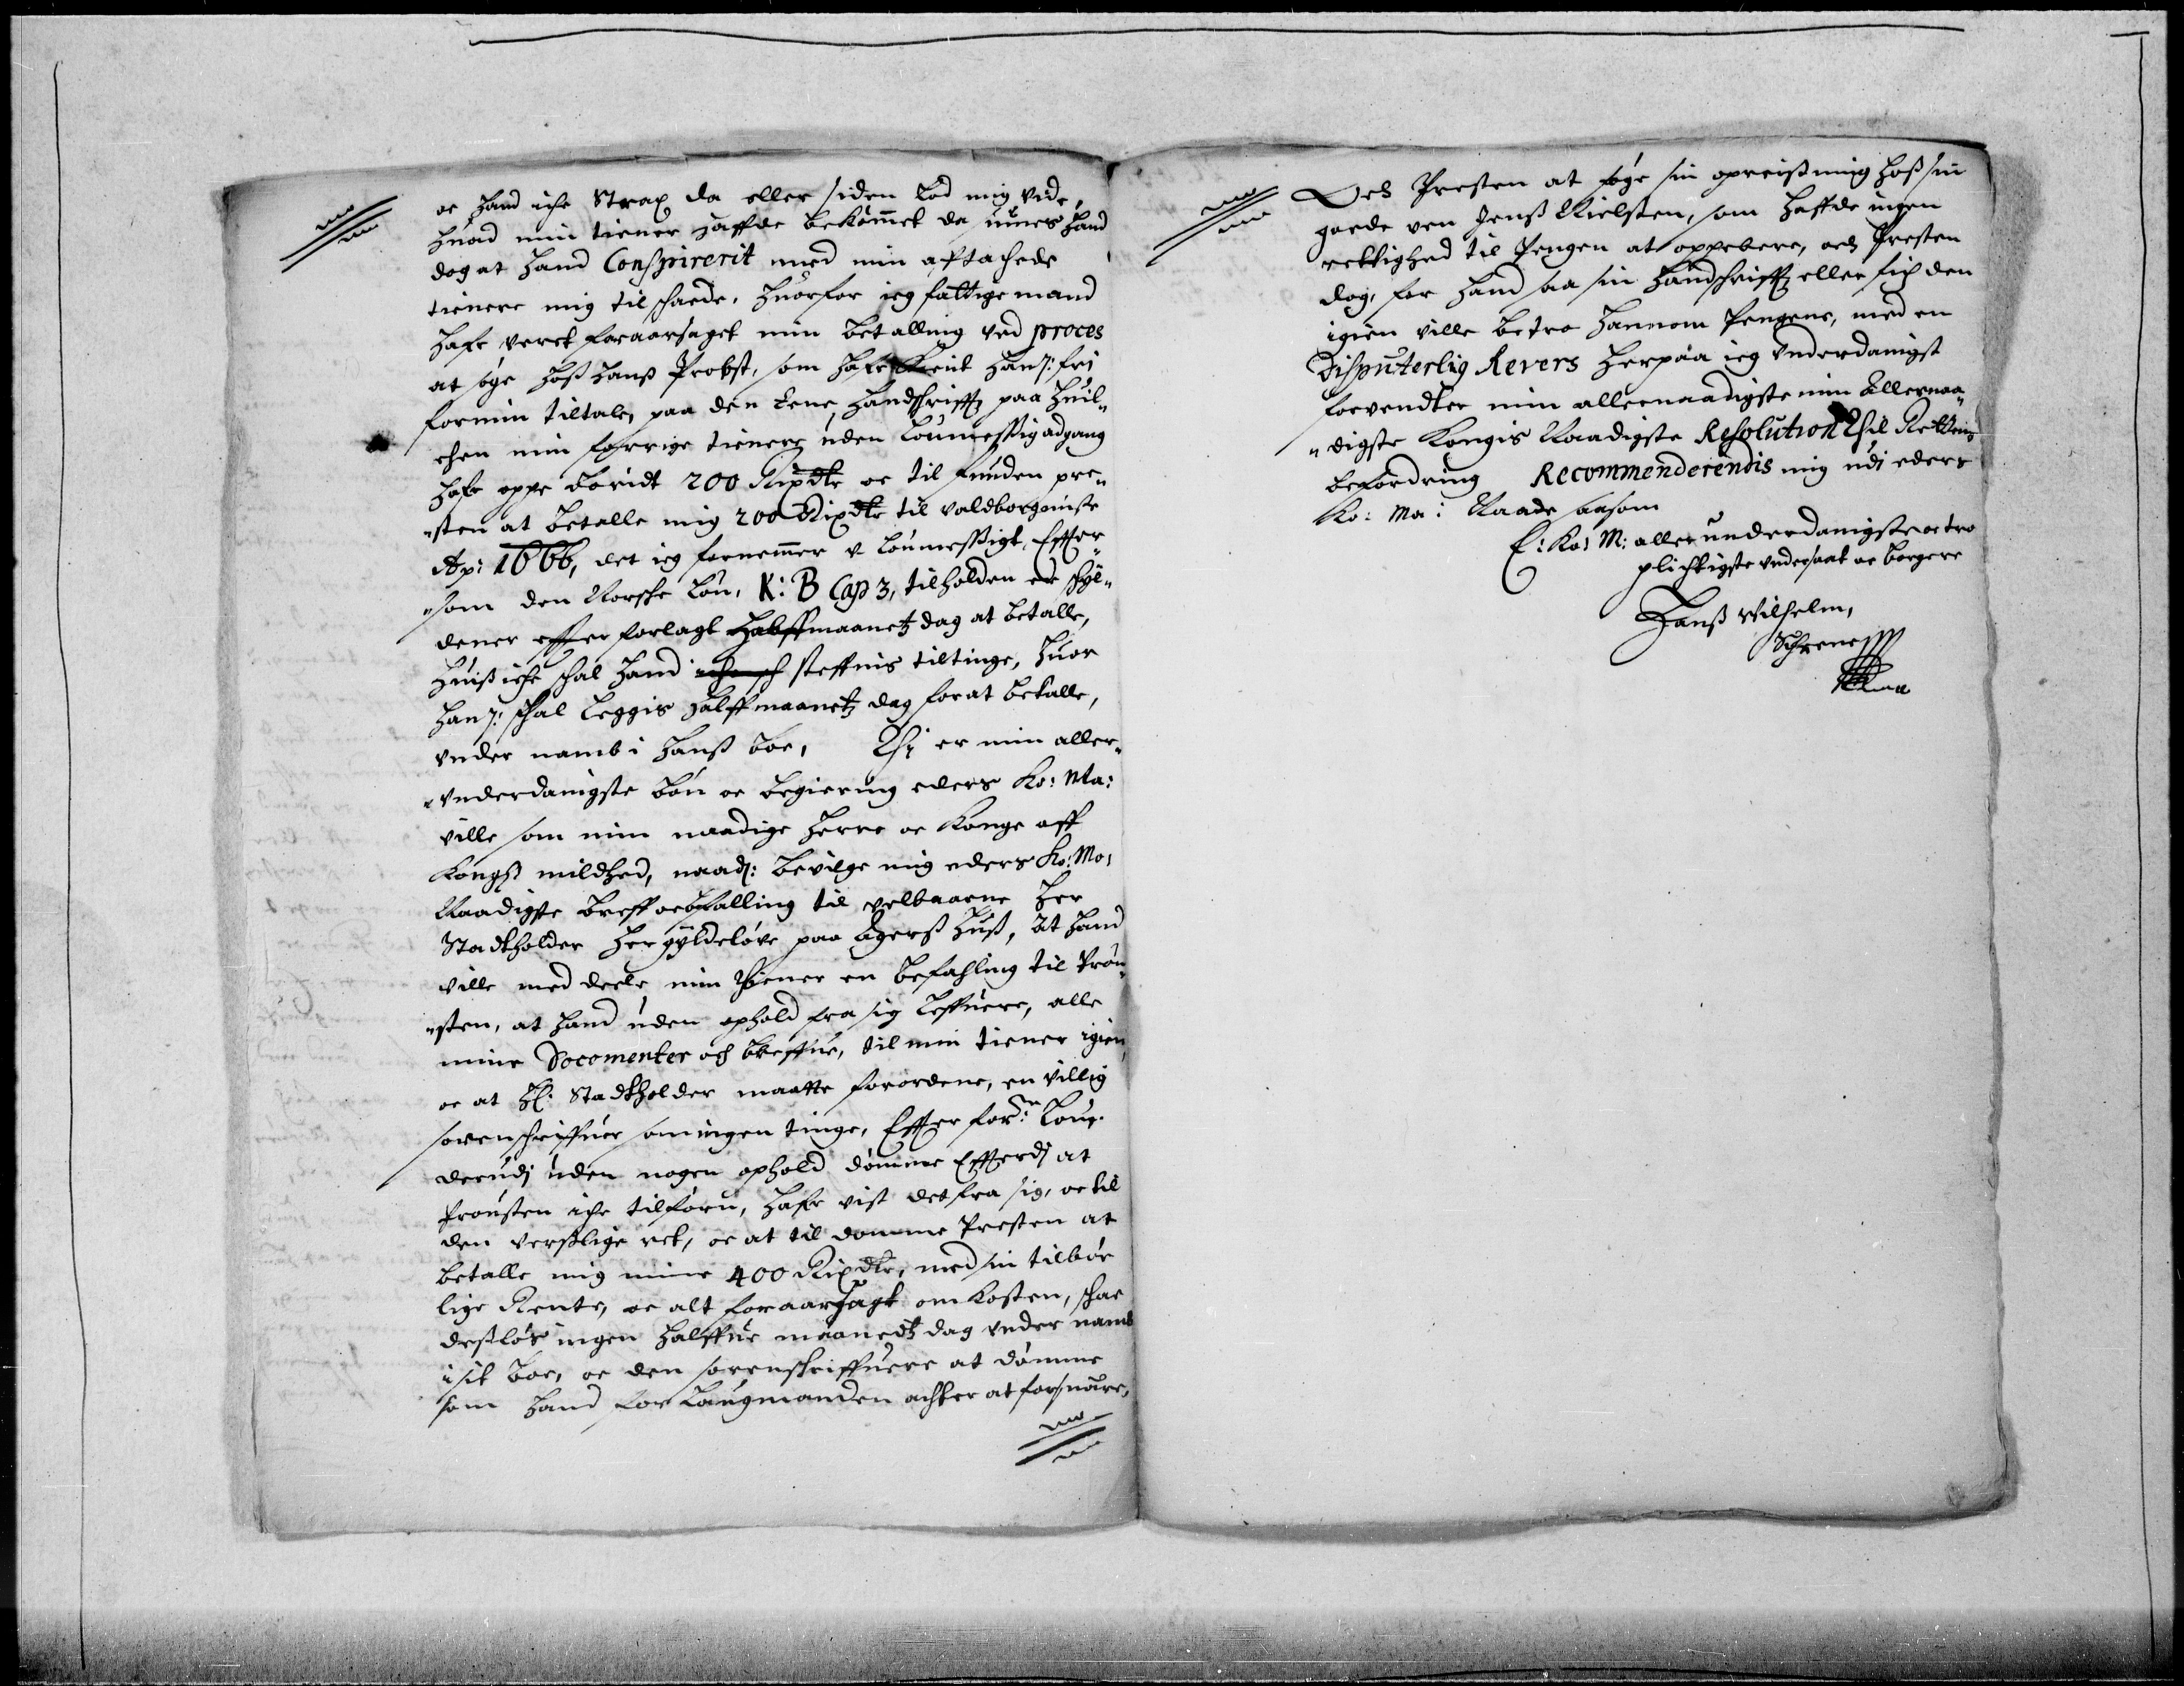 oc hand iche Strax da eller siden lod mig vide,
huad min tiener haffde bekommet da siunes hand
dog at hand Conspirerit med min aftachede
tienere mig til schaede, huorfor ieg fattige mand
hafr verit foraarsaget min betalling ved proces
at søge hoß hanß Probst, som hafr kient han: fri
for min tiltale, paa den eene handschrifft paa huil¬
chen min forrige tienere uden Loumessig adgang
hafr oppe boridt 200 Rixdlr oc til funden pre¬
¬sten at betalle mig 200 Rixdlr til valdborgmisse
Ap: 1666, det ieg fornemmer v loumessigt, Effter¬
¬som den Norsche Lou, K: B Cap 3, tilholden er schyl¬
dener effter forlagt halffmaanetz dag at betalle,
huiß iche schal hand steffnis til tinge, huor
han: schal leggis halffmaanetz dag for at betalle,
vnder namb i hanß boe, Thi er min aller¬
¬vnderdanigste bøn oc begiering eders Ko: Ma:
ville som min naadige herre oc Konge aff
Kongl mildhed, naad: bevilge mig eders Ko: Ma:
Naadigste breff oc befalling til velbaarne her
Stadtholder her gyldeløve paa Agerß huß, at hand
ville med deele min tiener en befahling til Prou¬
¬sten, at hand uden ophold fra sig leffuere, alle
mine Docomenter och breffue, til min tiener igien,
oc at H: Stadtholder maatte forordene, en villig
sorenschriffuer som ingen tinge, Effter for:ne Lou
derudj uden nogen ophold dømme Effterdj at
Prousten iche tilforn, hafr vist det fra sig, oc til
den verslige ret, oc at til domme Presten at
betalle mig mine 400 Rixdlr, med sin tilbør
lige Rente, oc alt foraarsagt omkosten, schae
desløs ingen halffue maanedtz dag vnder namb
i sit boe, oc den sorenschriffuere at dømme
som hand for Laugmanden achter at forsuare,
Och Presten at søge sin opreisning hoß sin
goede ven Jenß Nielsen, som haffde ingen
rettighed til Pengen at oppebere, och Presten
dog, før hand saa sin handschrifft eller fich den
igien ville betro hannom Pengene, med en
Disputerlig Revers herpaa ieg vnderdanigst
forventter min allernaadigste min Allernaa¬
¬digste Kongis Naadigste Resolution Thil Rettens
befordring Recommenderendis mig udj eders
Ko: Ma: Naade saasom
E: Ko: M: aller underdanigste oc tro
plichtigste vndersaat oc borgere
Hanß Wilhelm,